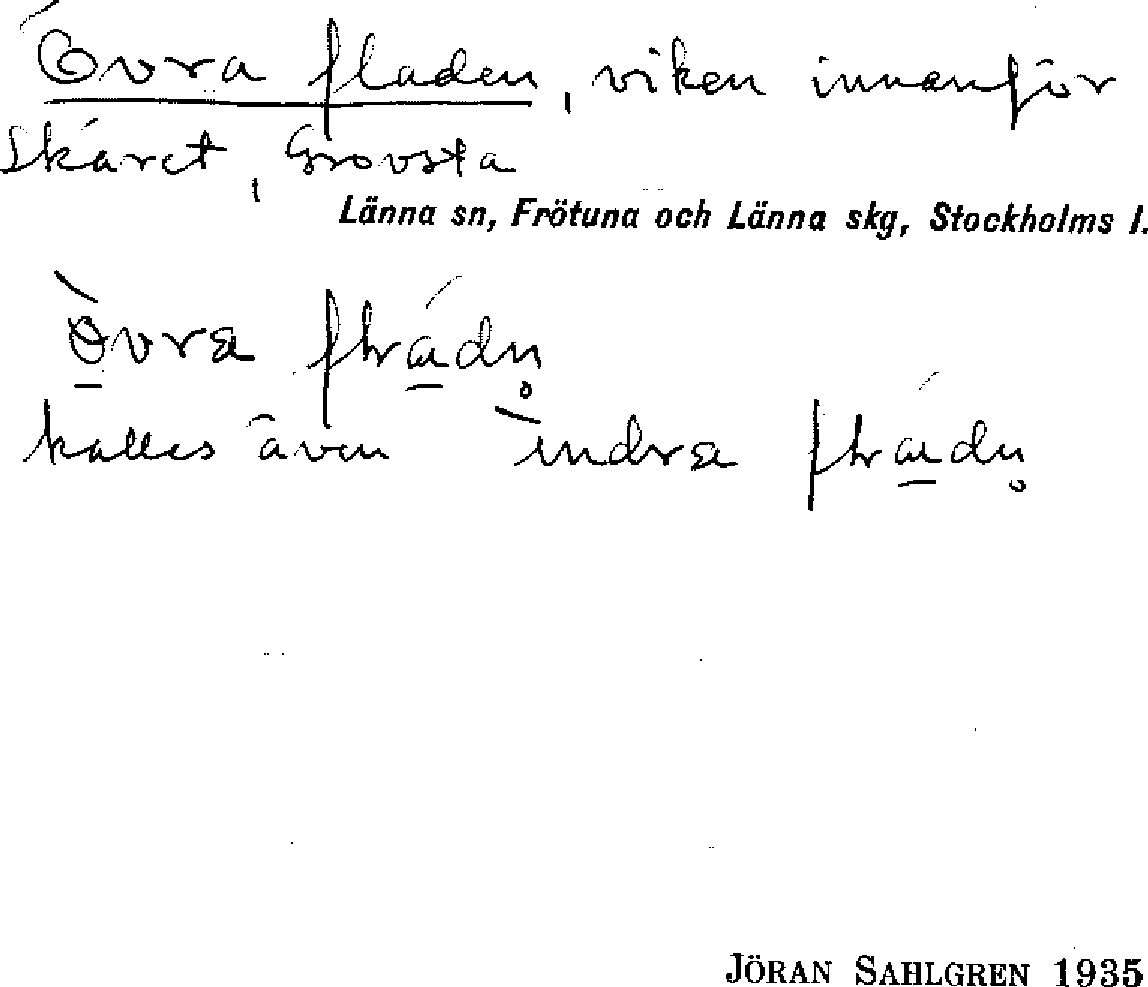 Övra fladen, viken innanför
Skäret, Grovsta
Länna sn, Frötuna och Länna skg, Stockholms l.
kallas även
JÖRAN SAHLGREN 1935